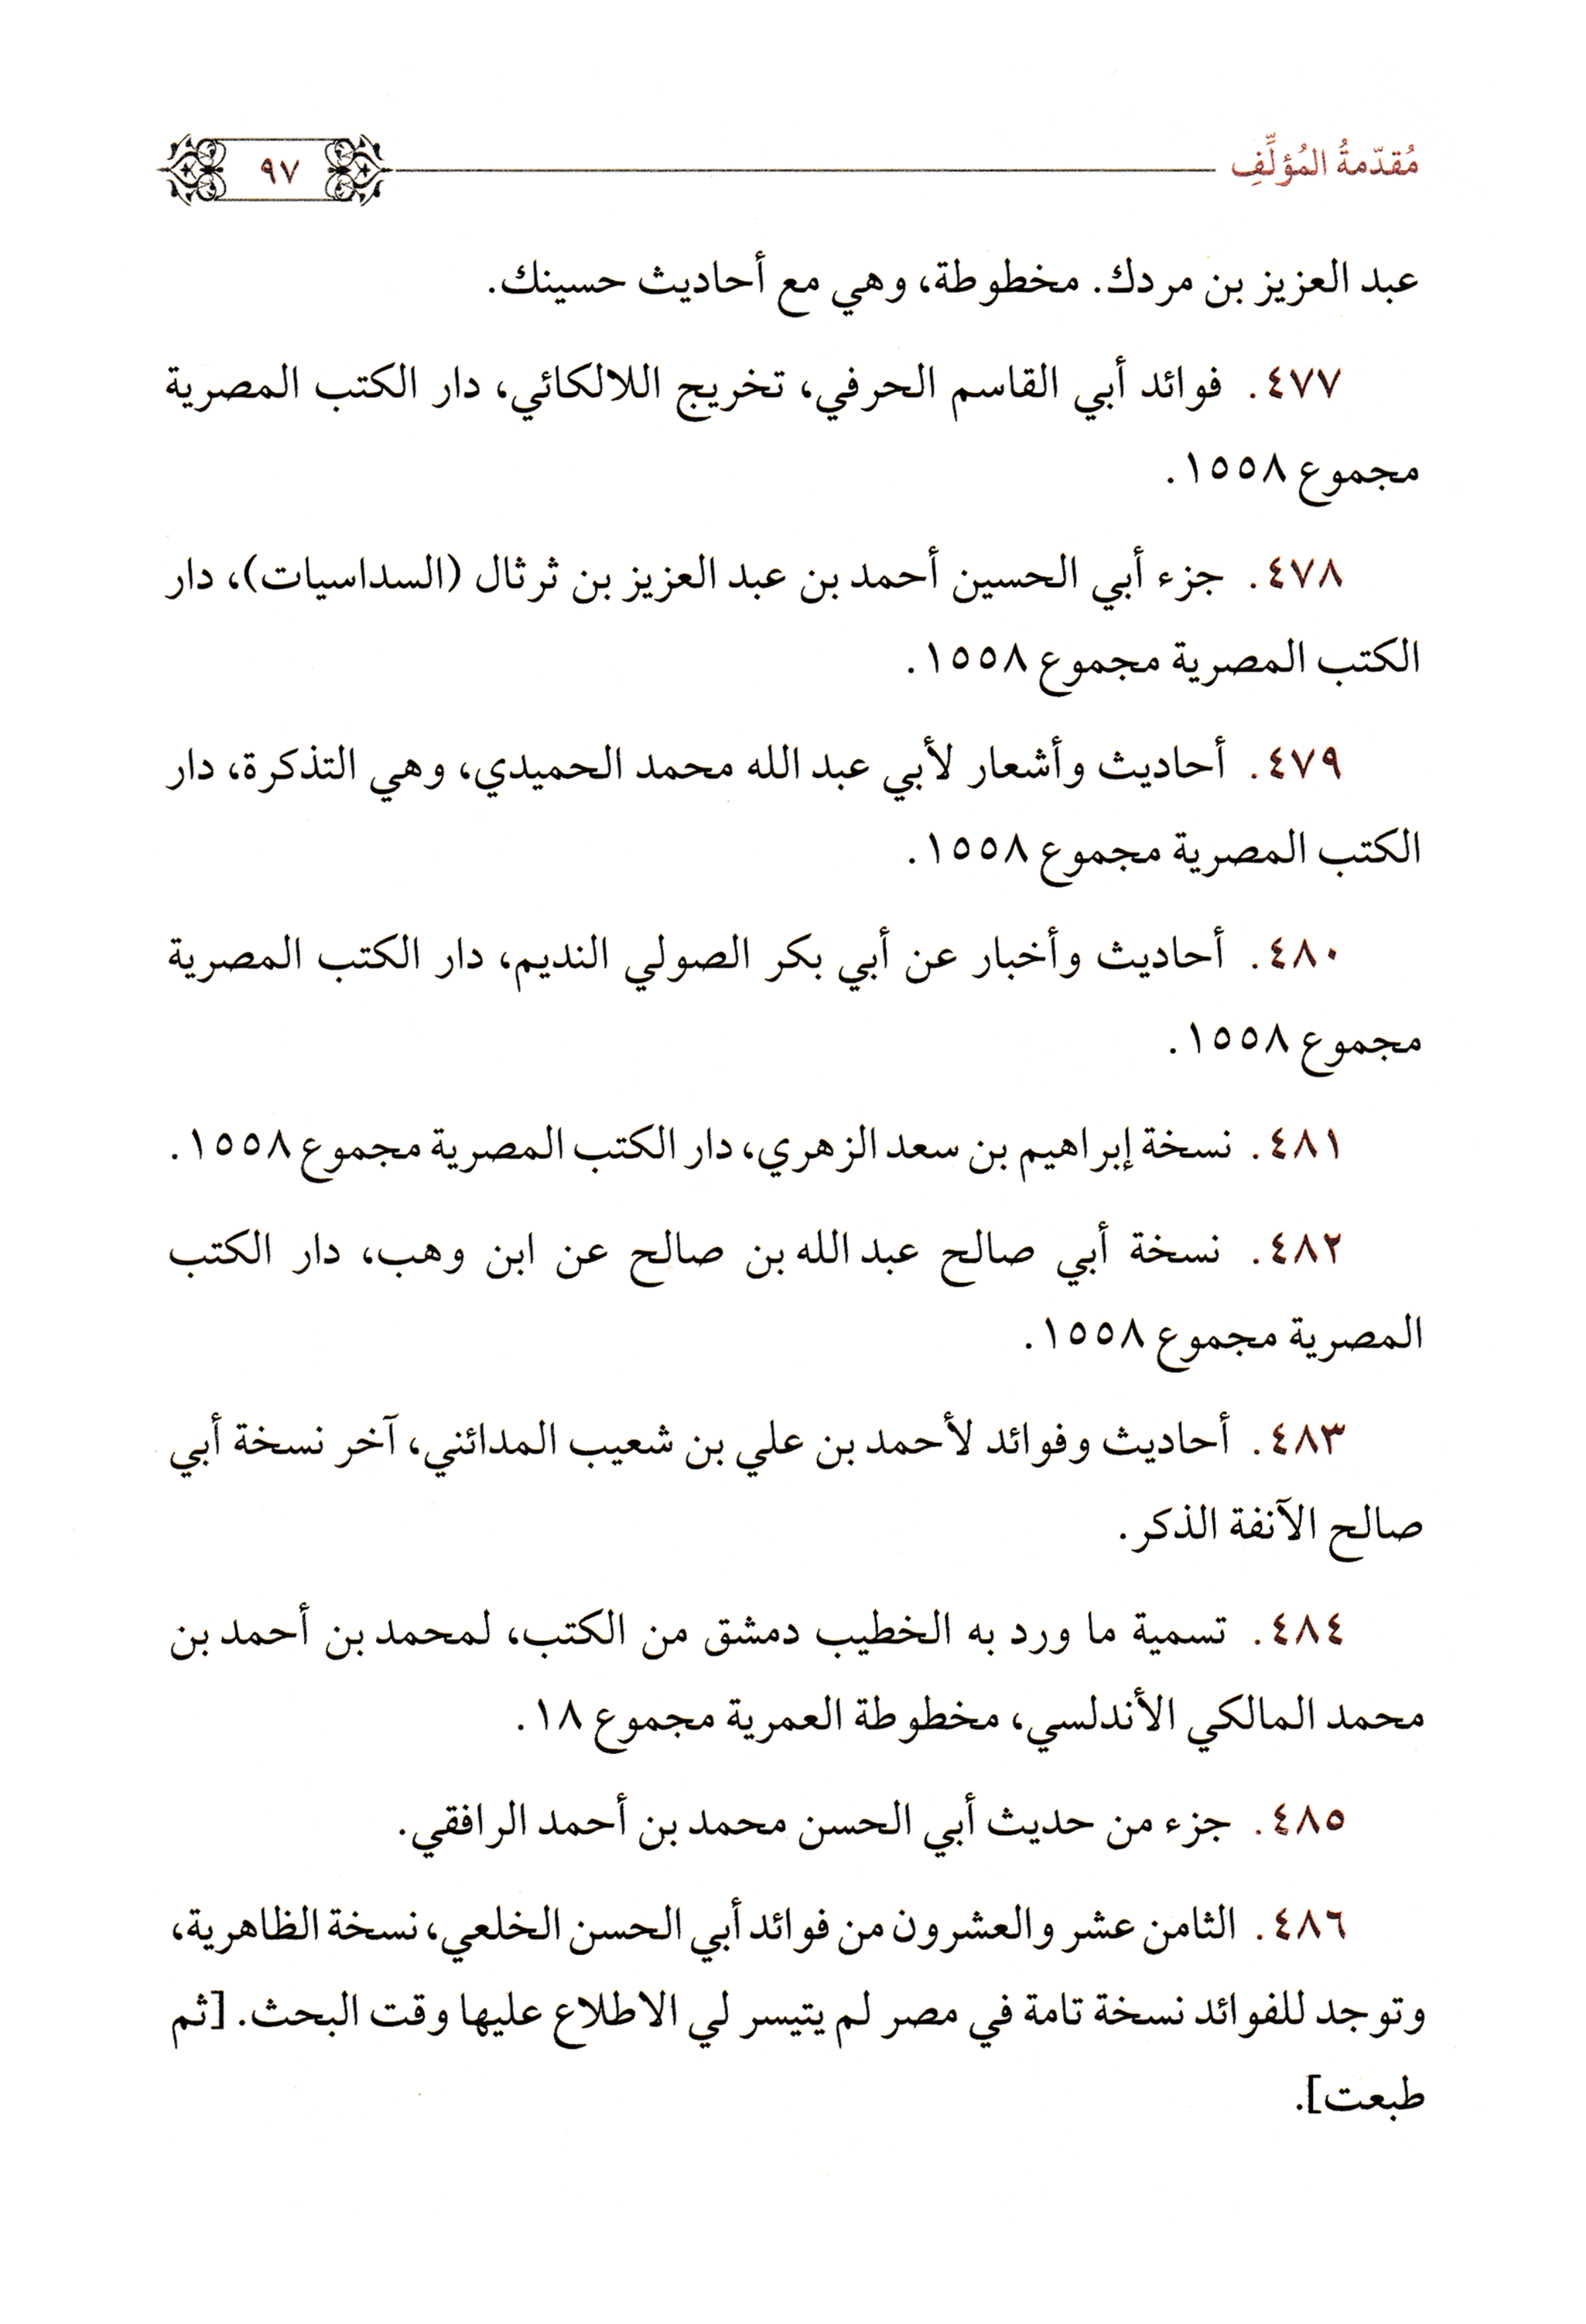 مُقدّمةُ المُؤلِّفِ
٩٧
عبد العزيز بن مردك. مخطوطة، وهي مع أحاديث حسينك.
٤٧٧. فوائد أبي القاسم الحرفي، تخريج اللالكائي، دار الكتب المصرية
مجموع ١٥٥٨.
٤٧٨. جزء أبي الحسين أحمد بن عبد العزيز بن ثرثال (السداسيات)، دار
الكتب المصرية مجموع ١٥٥٨.
٤٧٩. أحاديث وأشعار لأبي عبد الله محمد الحميدي، وهي التذكرة، دار
الكتب المصرية مجموع ١٥٥٨.
٤٨٠. أحاديث وأخبار عن أبي بكر الصولي النديم، دار الكتب المصرية
مجموع ١٥٥٨.
٤٨١. نسخة إبراهيم بن سعد الزهري، دار الكتب المصرية مجموع ١٥٥٨.
٤٨٢. نسخة أبي صالح عبد الله بن صالح عن ابن وهب، دار الكتب
المصرية مجموع ١٥٥٨.
٤٨٣. أحاديث وفوائد لأحمد بن علي بن شعيب المدائني، آخر نسخة أبي
صالح الآنفة الذكر.
٤٨٤. تسمية ما ورد به الخطيب دمشق من الكتب، لمحمد بن أحمد بن
محمد المالكي الأندلسي، مخطوطة العمرية مجموع ١٨.
٤٨٥. جزء من حديث أبي الحسن محمد بن أحمد الرافقي.
٤٨٦. الثامن عشر والعشرون من فوائد أبي الحسن الخلعي، نسخة الظاهرية،
وتوجد للفوائد نسخة تامة في مصر لم يتيسر لي الاطلاع عليها وقت البحث. [ثم
طبعت].